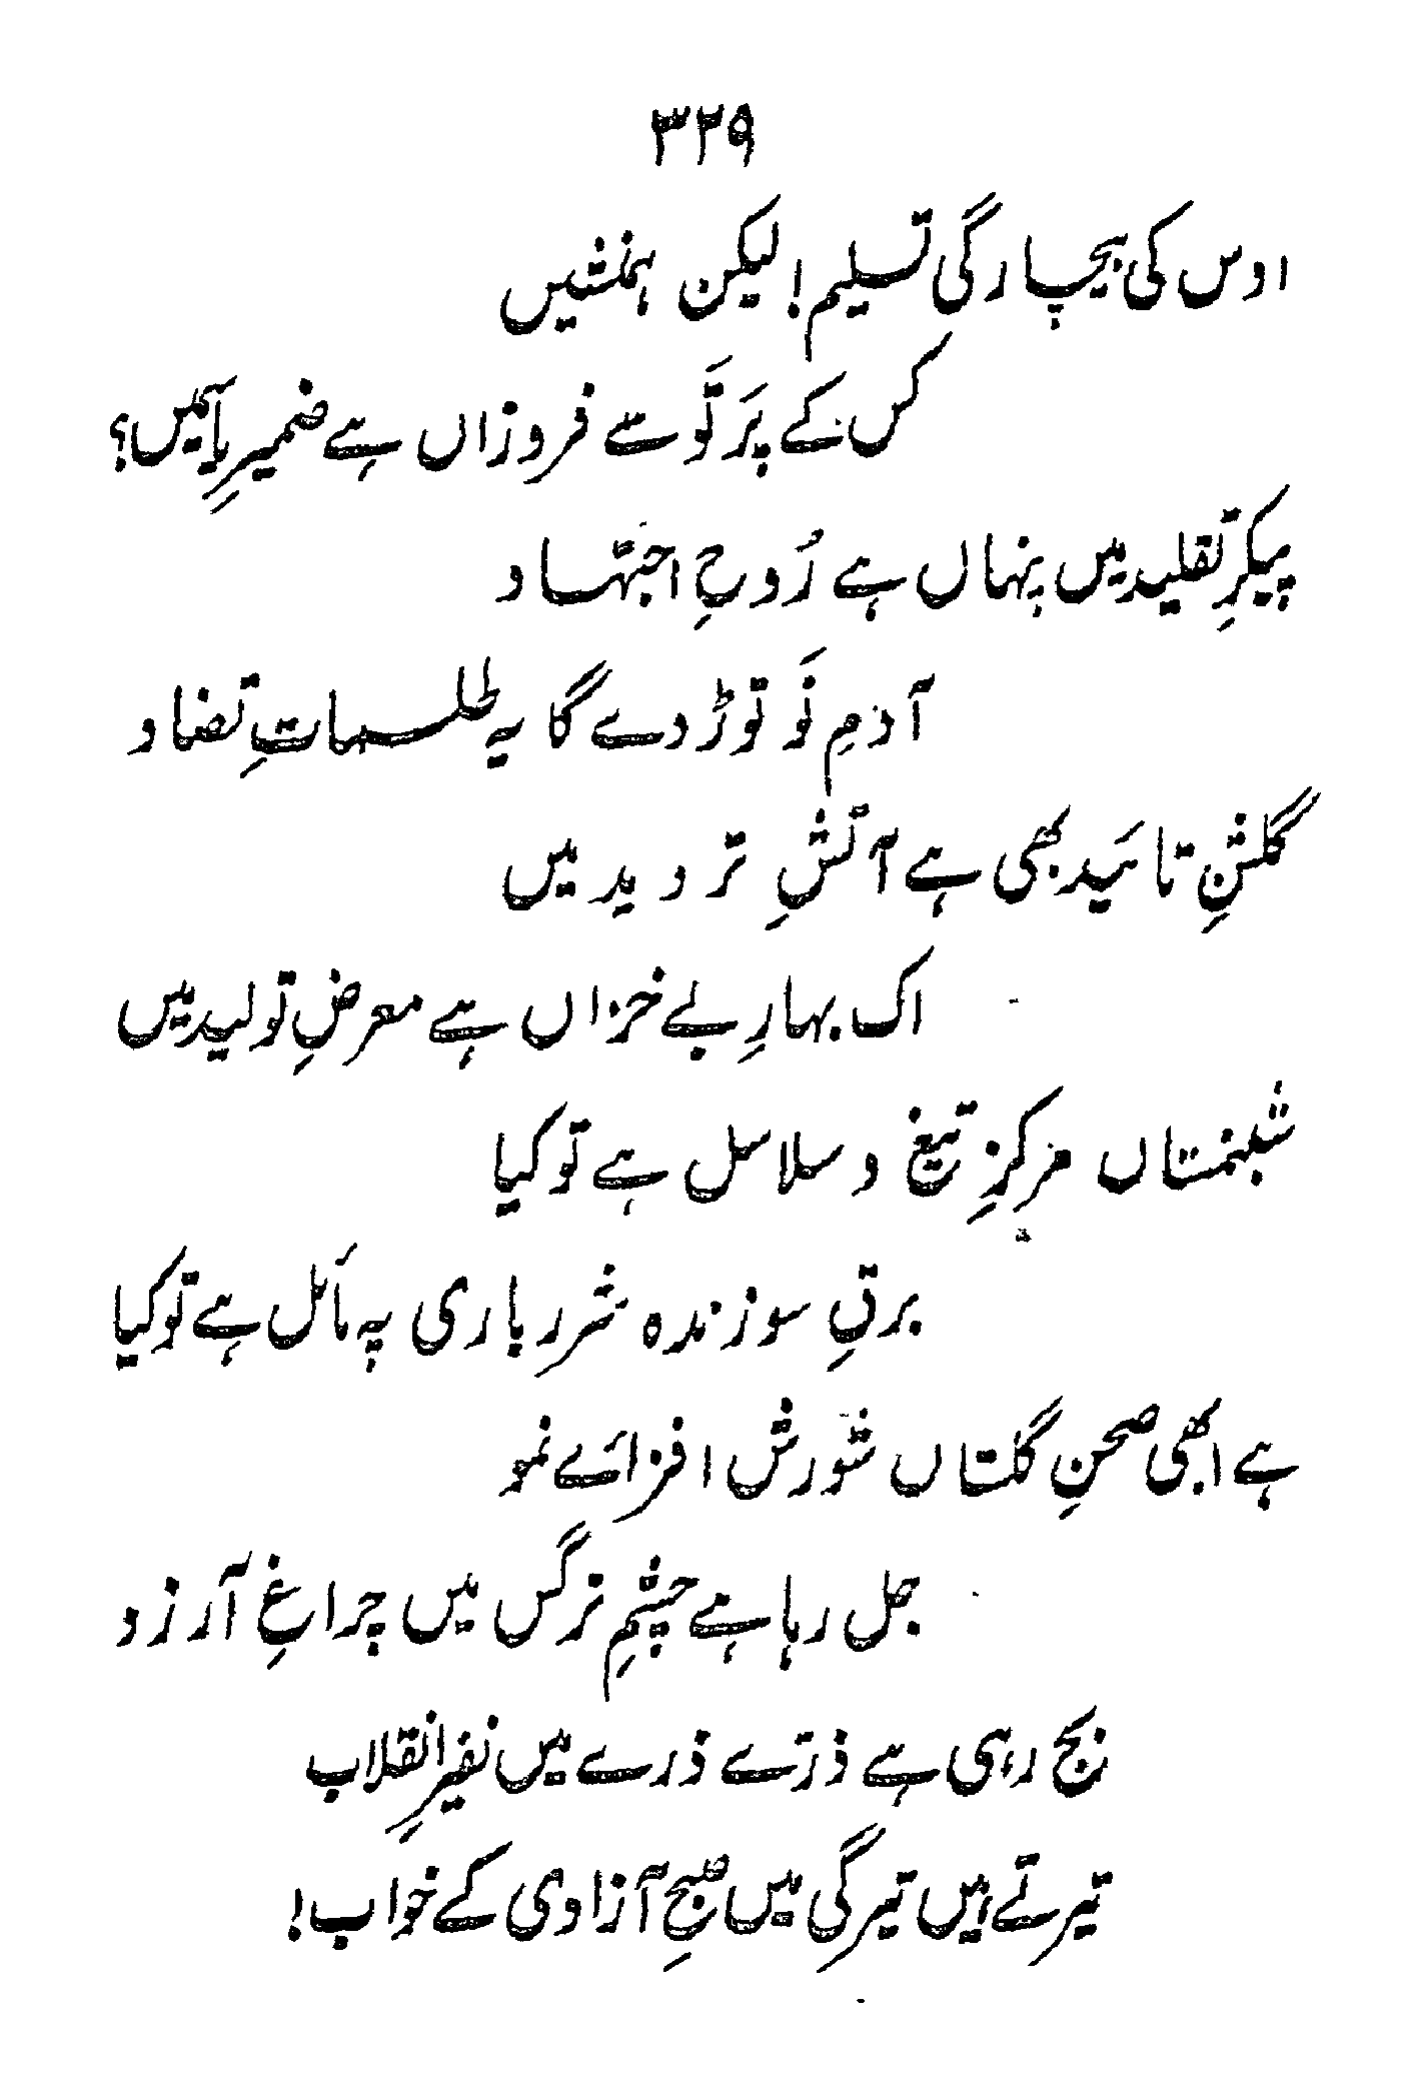 ۳۲۹
اوس کی بیچارگی تسلیم! لیکن ہمنشیں
کس کے پَرتَو سے فروزاں ہے ضمیرِ یاسمیں؟
پیکرِ تقلید میں پنہاں ہے رُوحِ اجتہاد
آدمِ نَو توڑ دے گا یہ طلسماتِ تضاد
گلشنِ تائید بھی ہے آتشِ تردید میں
اک بہارِ بے خزاں ہے معرضِ تولید میں
شبنمستاں مرکزِ تیغ و سلاسل ہے تو کیا
برقِ سوزندہ شرر باری پہ مائل ہے تو کیا
ہے ابھی صحنِ گلستاں شورش افزائے نمو
جل رہا ہے چشمِ نرگس میں چراغِ آرزو
بج رہی ہے ذرّے ذرے میں نفیرِ انقلاب
تیرتے ہیں تیرگی میں صبحِ آزادی کے خواب!